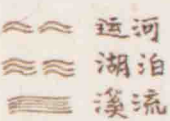 运河
湖泊
溪流